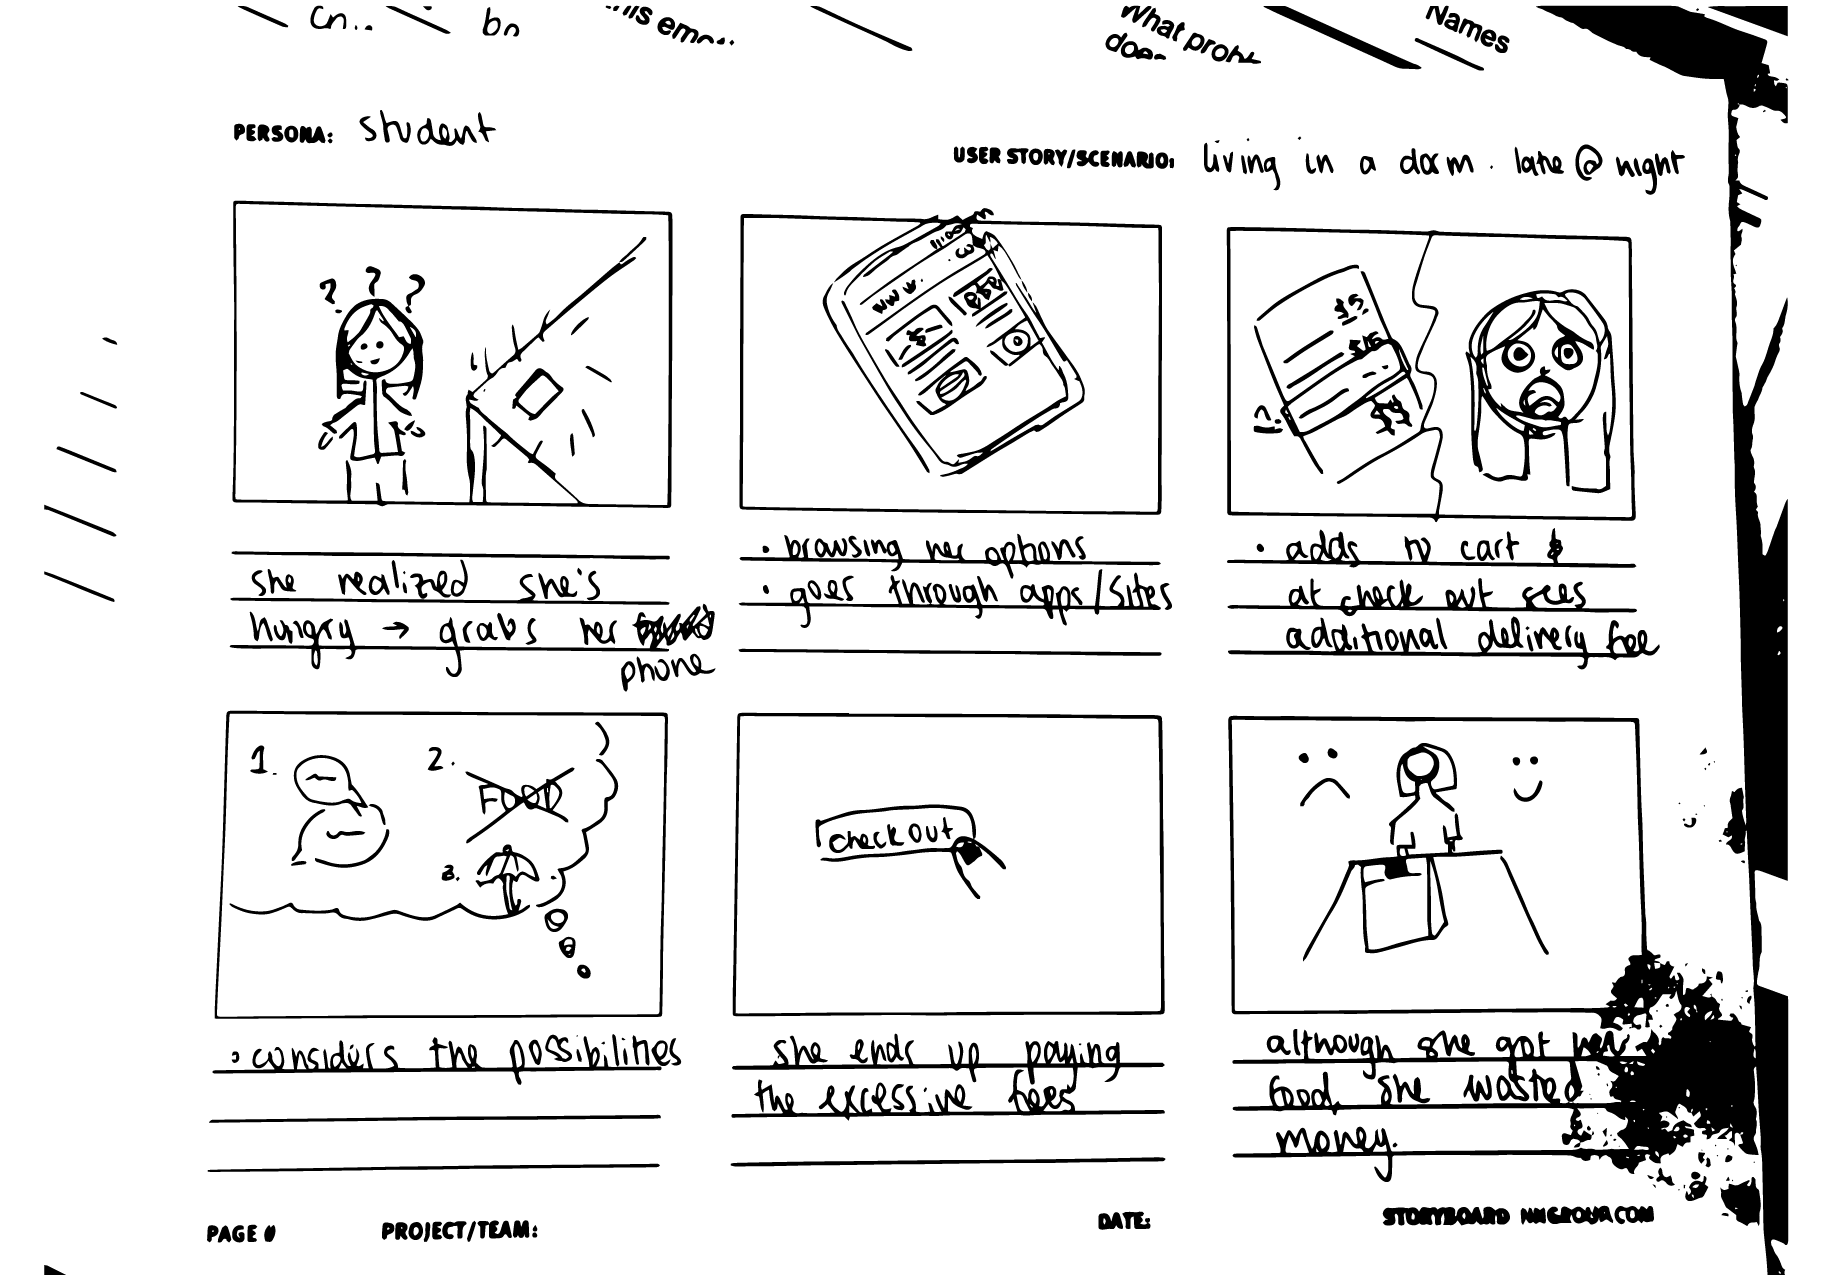 his emo
What prob
does
Names
PERSONA: Student
USER STORY/SCENARIO: living in a dorm. late @ night
? ? ?
11:00
www.
$
$5
$15
$$
!?
she realized she's
hungry → grabs her
phone
• browsing her options
• goes through apps/sites
• adds to cart &
at check out sees
additional delivery fee
1.
2.
FOOD
3.
check out
• considers the possibilities
she ends up paying
the excessive fees
although she got her
food, she wasted
money.
PAGE #
PROJECT/TEAM:
DATE:
STORYBOARD NNGROUP.COM